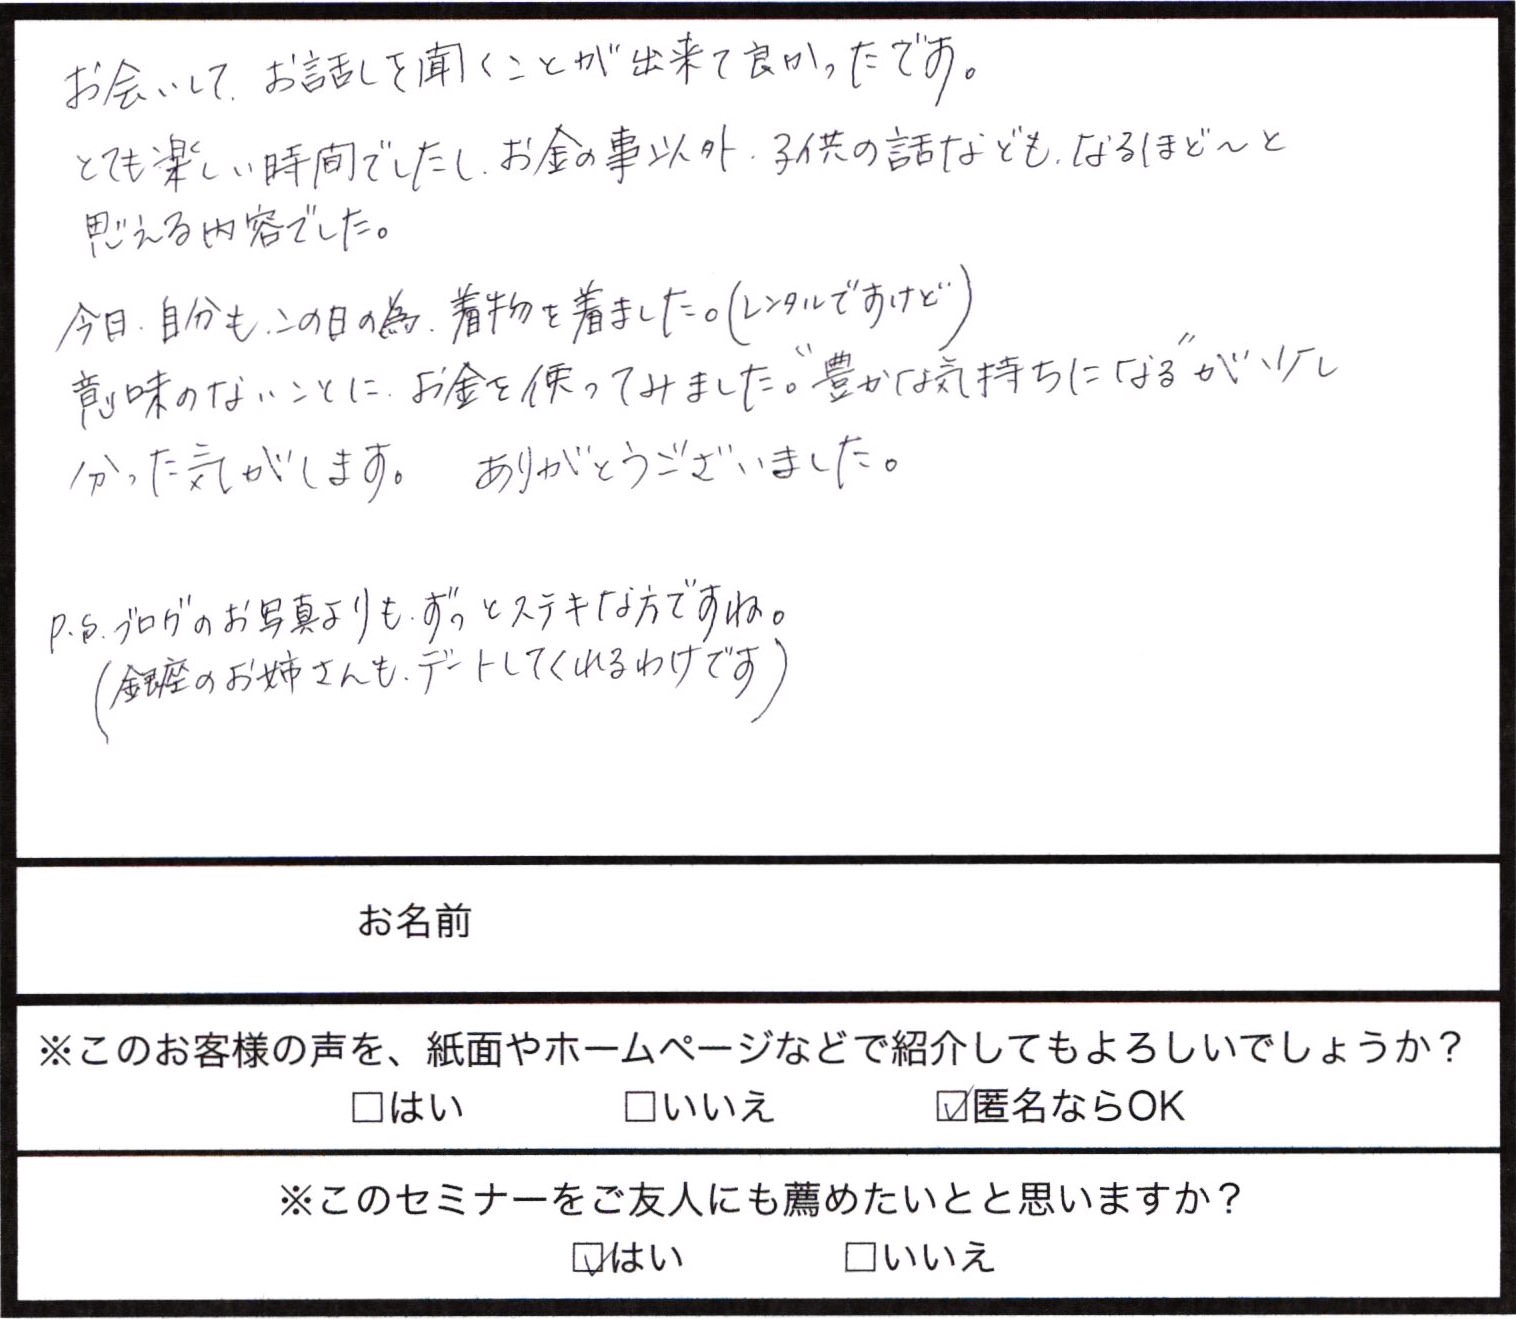 お会いして、お話しを聞くことが出来て良かったです。
とても楽しい時間でしたし、お金の事以外、子供の話なども、なるほど〜と
思える内容でした。
今日、自分も、この日の為、着物を着ました。(レンタルですけど)
意味のないことに、お金を使ってみました。"豊かな気持ちになる"が少し
分った気がします。 ありがとうございました。
P.S.ブログのお写真よりも、ずっとステキな方ですね。
(銀座のお姉さんも、デートしてくれるわけです)
お名前
※このお客様の声を、紙面やホームページなどで紹介してもよろしいでしょうか?
□はい □いいえ ☑匿名ならOK
※このセミナーをご友人にも薦めたいとと思いますか?
☑はい □いいえ